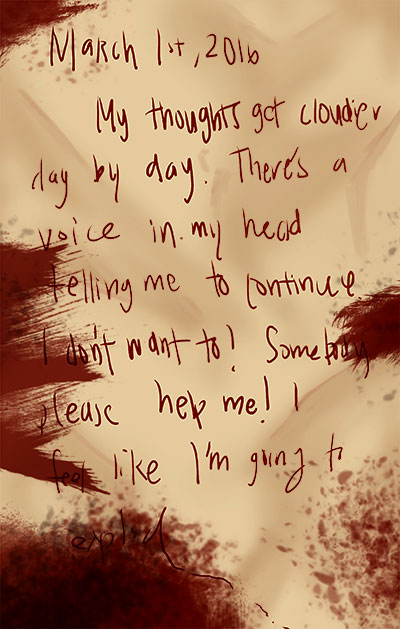 March 1st, 2016
My thoughts get cloudier
day by day. There's a
voice in my head
telling me to continue
I don't want to! Somebody
please help me! I
feel like I'm going to
explod